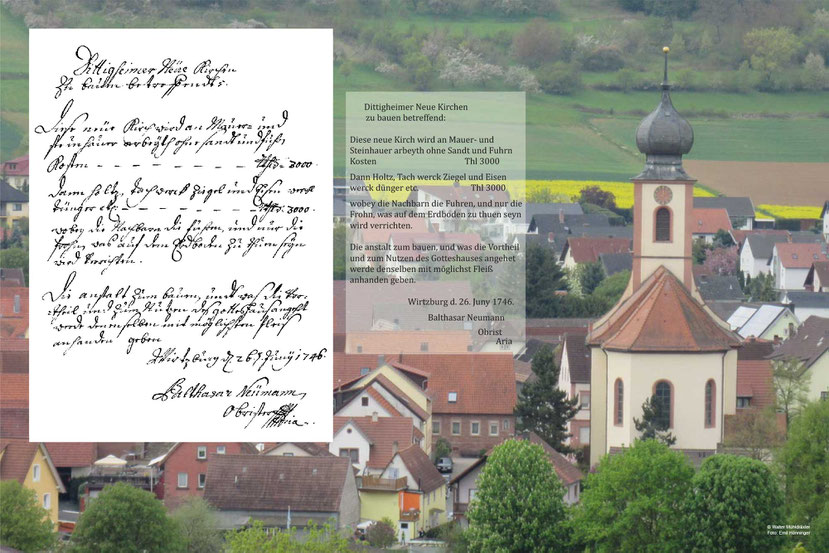 Dittigheimer Neue Kirchen
zu bauen betreffendt:
Diese neue Kirch wird an Mauer= und
steinhauer arbeyth ohne sandt und fuhr
Kosten — — — — — — — — Thlr. 3000.
dann holtz, tach werck ziegel und Eysen werck
dünger etc. — — — — — — Thlr. 3000.
wobey die Nachbarn die fuhren, und nur die
frohn was auf dem Erdboden zu thuen seyn
wird verrichten.
Die anstalt zum bauen, und was die Vor=
theil und zum Nutzen des gotteshauses angehet
werde denenselben mit möglichsten fleis
anhanden geben
Wirtzburg d. 26t Juny 1746.
Balthasar Neumann
Obrister
Dittigheimer Neue Kirchen
zu bauen betreffend:
Diese neue Kirch wird an Mauer- und
Steinhauer arbeyth ohne Sandt und Fuhrn
Kosten Thl 3000
Dann Holtz, Tach werck Ziegel und Eisen
werck dünger etc. Thl 3000
wobey die Nachbarn die Fuhren, und nur die
Frohn, was auf dem Erdboden zu thuen seyn
wird verrichten.
Die anstalt zum bauen, und was die Vortheil
und zum Nutzen des Gotteshauses angehet
werde denselben mit möglichst Fleiß
anhanden geben.
Wirtzburg d. 26. Juny 1746.
Balthasar Neumann
Obrist
Aria
Foto: Emil Hönninger